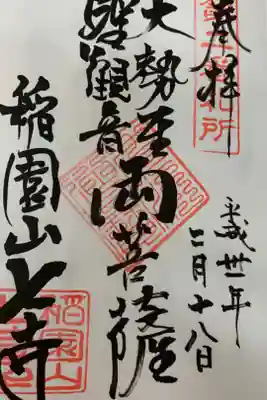 奉拝
平成卅一年
二月十八日
大勢至
聖觀音
両菩薩
稲園山七寺
稲園山